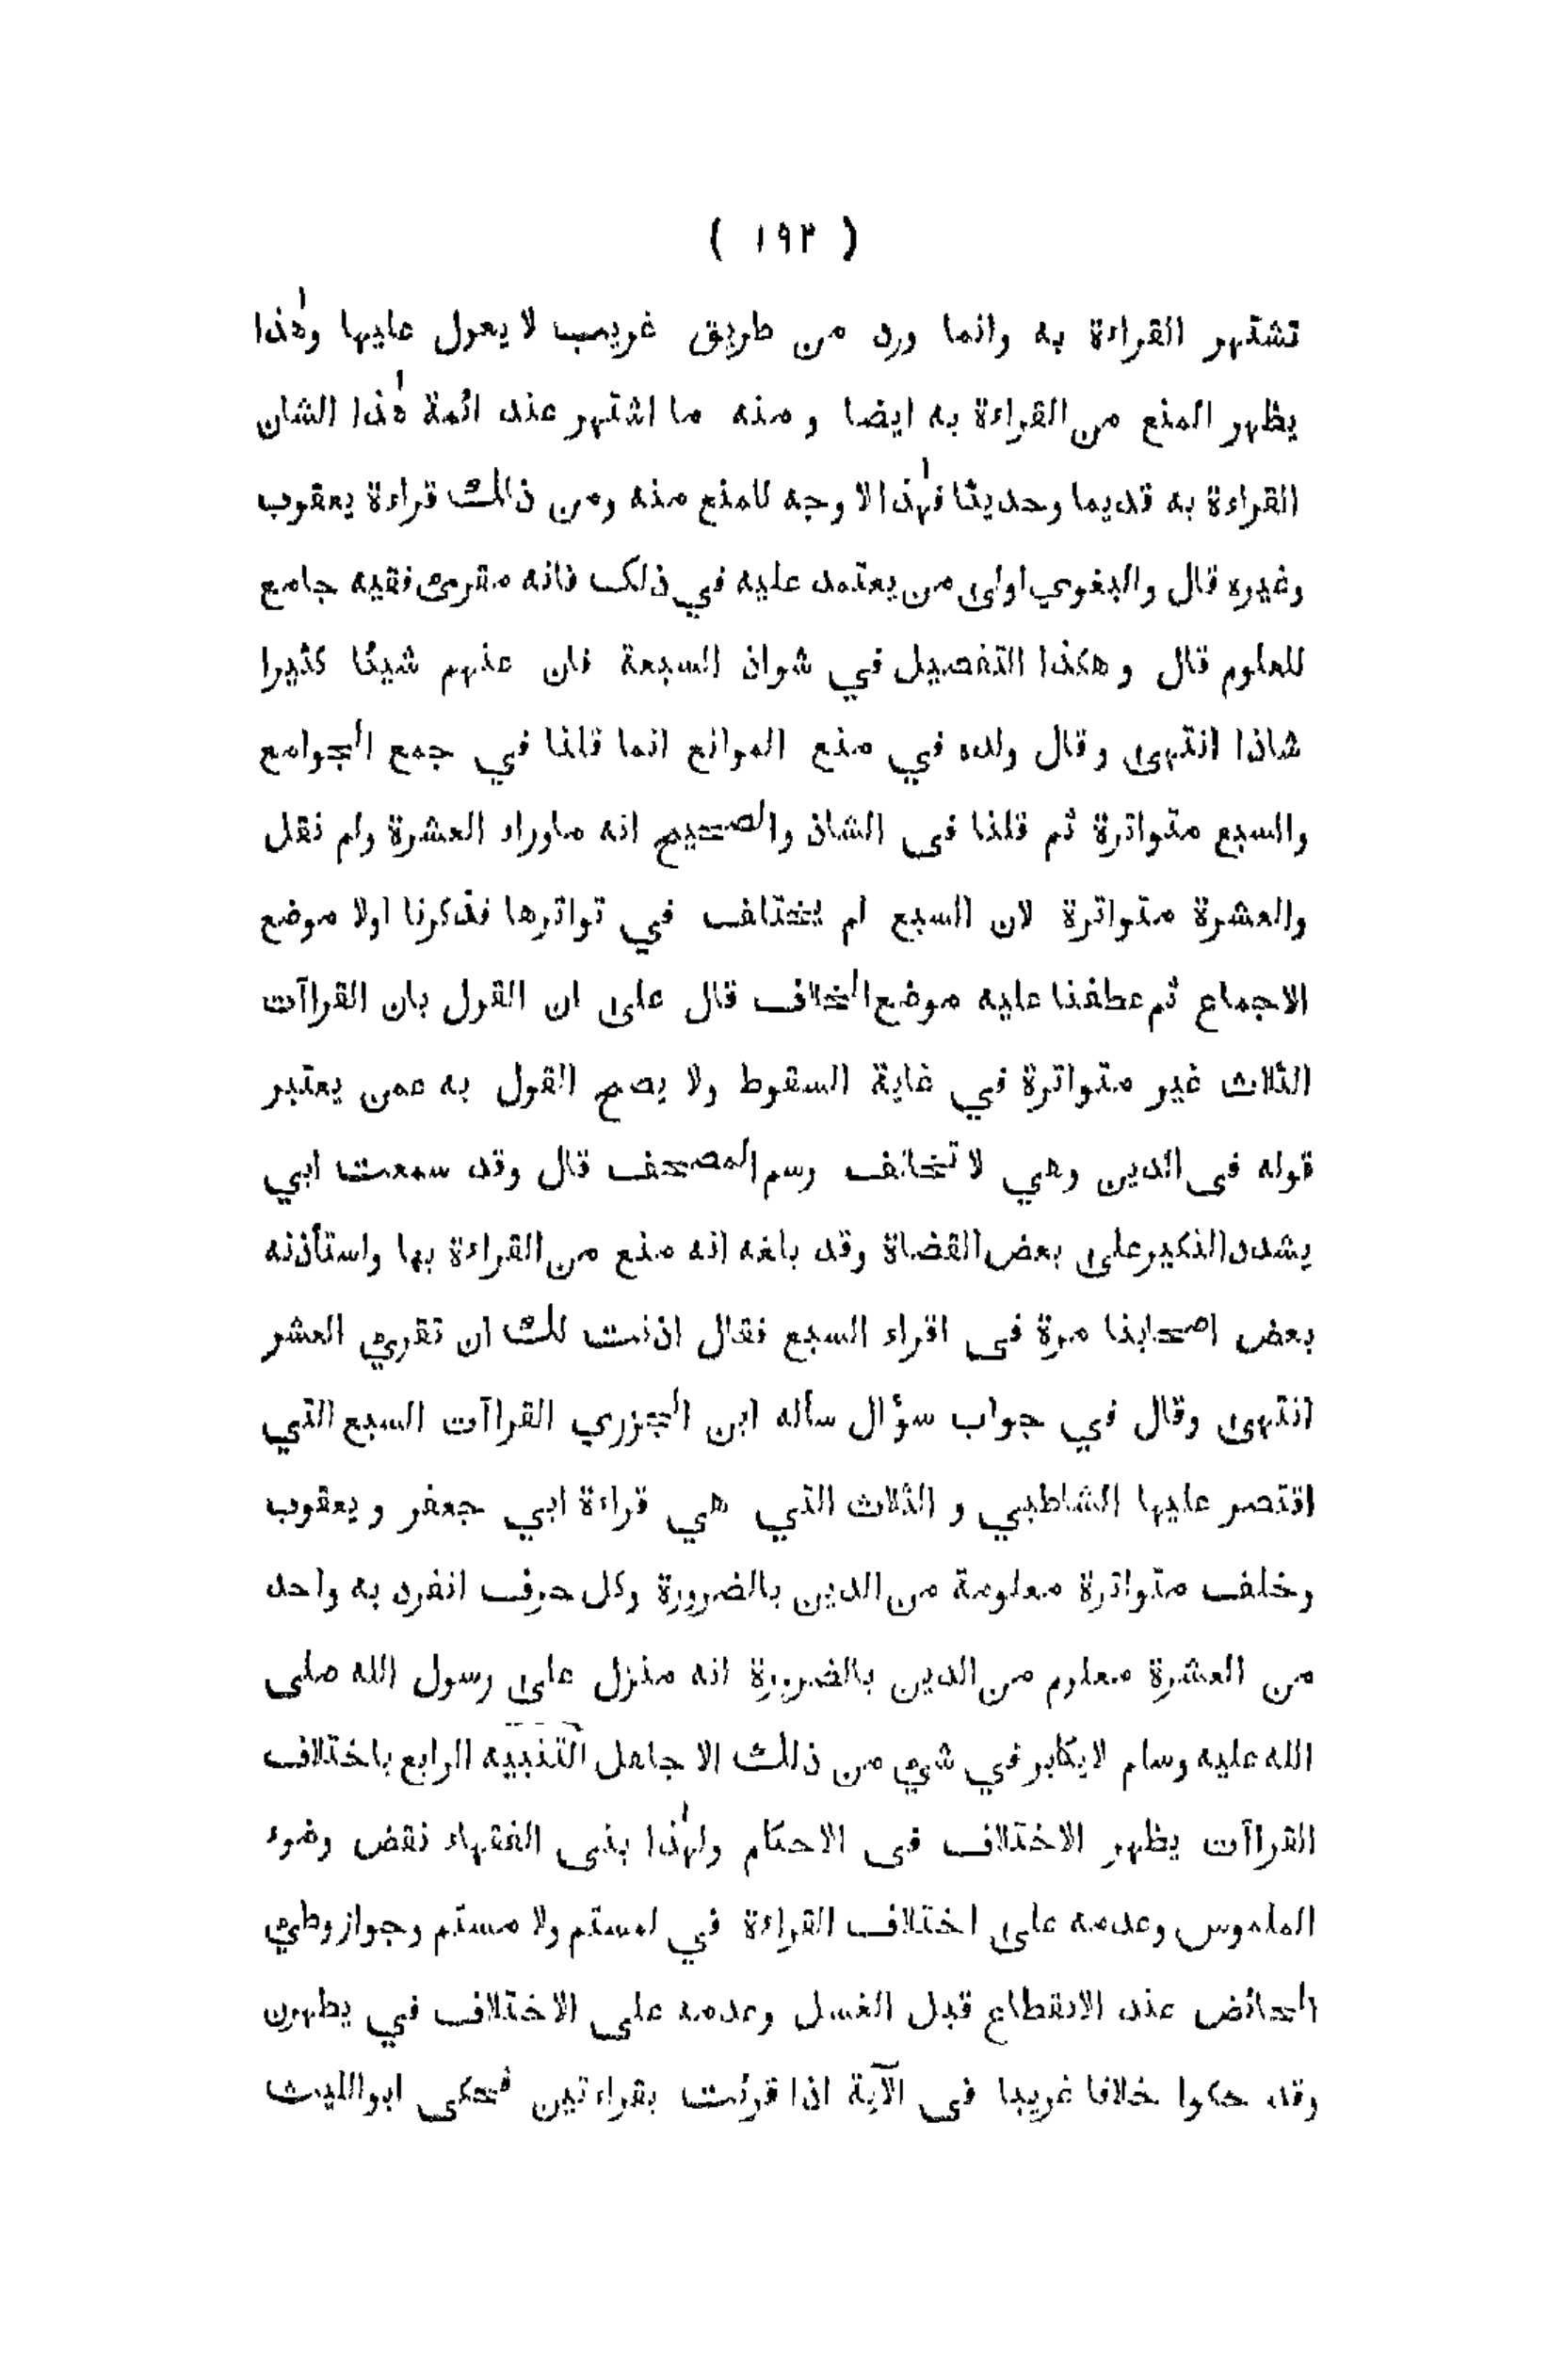 ( ١٩٢ )
تشتهر القراءة به وانما ورد من طريق غريب لا يعول عليها وهٰذا
يظهر المنع من القراءة به ايضا و منه ما اشتهر عند ائمة هٰذا الشان
القراءة به قديما وحديثا فهٰذا لا وجه للمنع منه ومن ذالك قراءة يعقوب
وغيره قال والبغوي اولى من يعتمد عليه في ذلك فانه مقرئ فقيه جامع
للعلوم قال و هكذا التفصيل في شواذ السبعة فان عنهم شيئا كثيرا
شاذا انتهى وقال ولده في منع الموانع انما قلنا في جمع الجوامع
والسبع متواترة ثم قلنا فى الشاذ والصحيح انه ماوراء العشرة ولم نقل
والعشرة متواترة لان السبع لم يختلف في تواترها فذكرنا اولا موضع
الاجماع ثم عطفنا عليه موضع الخلاف قال على ان القول بان القراآت
الثلاث غير متواترة في غاية السقوط ولا يصح القول به عمن يعتبر
قوله فى الدين وهي لا تخالف رسم المصحف قال وقد سمعت ابي
يشدد النكير على بعض القضاة وقد بلغه انه منع من القراءة بها واستأذنه
بعض اصحابنا مرة فى اقراء السبع فقال اذنت لك ان تقرئ العشر
انتهى وقال في جواب سؤال سأله ابن الجزري القراآت السبع التي
اقتصر عليها الشاطبي و الثلاث التي هي قراءة ابي جعفر و يعقوب
وخلف متواترة معلومة من الدين بالضرورة وكل حرف انفرد به واحد
من العشرة معلوم من الدين بالضرورة انه منزل على رسول الله صلى
الله عليه وسلم لايكابر في شئ من ذلك الا جاهل التنبيه الرابع باختلاف
القراآت يظهر الاختلاف فى الاحكام ولهٰذا بنى الفقهاء نقض وضوء
الملموس وعدمه على اختلاف القراءة في لمستم ولا مستم وجواز وطئ
الحائض عند الانقطاع قبل الغسل وعدمه على الاختلاف في يطهرن
وقد حكوا خلافا غريبا فى الآية اذا قرئت بقراءتين فحكى ابوالليث